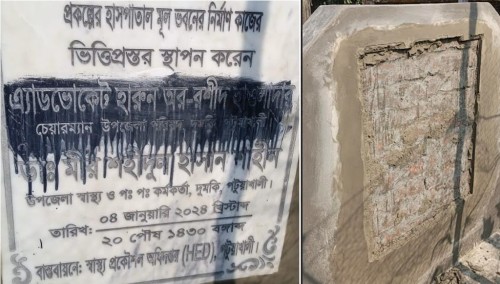 প্রকল্পের হাসপাতাল মূল ভবনের নির্মাণ কাজের
ভিত্তিপ্রস্তর স্থাপন করেন
এ্যাডভোকেট হারুন অর-রশীদ হাওলাদার
চেয়ারম্যান উপজেলা পরিষদ
ডাঃ মীর শহীদুল হাসান শাহীন
উপজেলা স্বাস্থ্য ও পঃ পঃ কর্মকর্তা, দুমকি, পটুয়াখালী।
০৪ জানুয়ারি ২০২৪ খ্রিস্টাব্দ
তারিখ:
২০ পৌষ ১৪৩০ বঙ্গাব্দ
বাস্তবায়নে: স্বাস্থ্য প্রকৌশল অধিদপ্তর (HED), পটুয়াখালী।